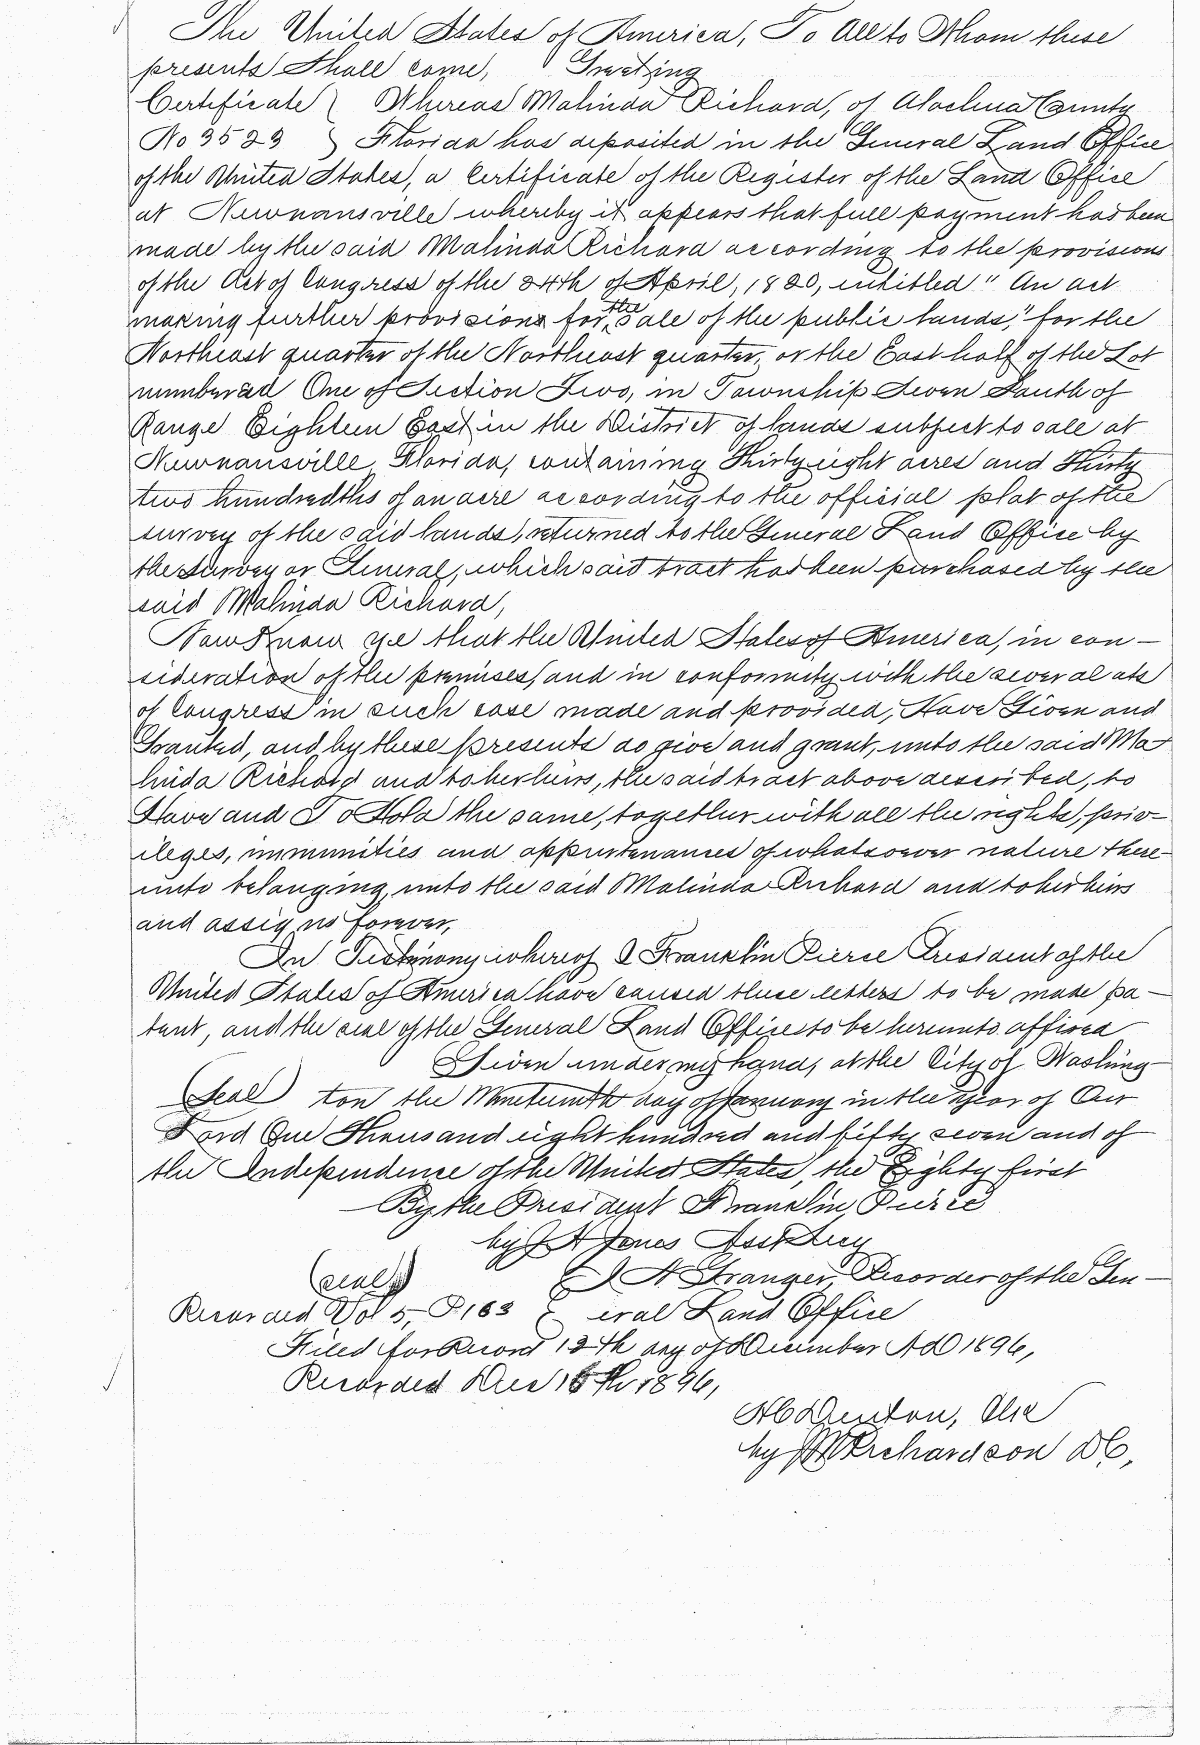 The United States of America, To All to Whom these
presents Shall come, Greeting
Certificate Whereas Malinda Richard, of Alachua County
No 3523 Florida has deposited in the General Land Office
of the United States, a Certificate of the Register of the Land Office
at Newnansville whereby it appears that full payment has been
made by the said Malinda Richard according to the provisions
of the Act of Congress of the 24th of April, 1820, entitled "An act
making further provisions for the sale of the public lands," for the
Northeast quarter of the Northeast quarter, or the East half of the Lot
numbered One of Section Two, in Township Seven South of
Range Eighteen East in the District of lands subject to sale at
Newnansville, Florida, containing Thirty eight acres and Thirty
two hundredths of an acre according to the official plat of the
survey of the said lands, returned to the General Land Office by
the Surveyor General, which said tract has been purchased by the
said Malinda Richard,
Now Know ye that the United States of America, in con-
sideration of the premises, and in conformity with the several acts
of Congress in such case made and provided, Have Given and
Granted, and by these presents do give and grant, unto the said Ma-
linda Richard and to her heirs, the said tract above described, to
Have and To Hold the same, together with all the rights, priv-
ileges, immunities and appurtenances of whatsoever nature there-
unto belonging, unto the said Malinda Richard and to her heirs
and assigns forever,
In Testimony whereof I Franklin Pierce President of the
United States of America have caused these letters to be made pa-
tent, and the seal of the General Land Office to be hereunto affixed
Given under my hand, at the City of Washing-
(Seal) ton the Nineteenth day of January in the year of Our
Lord One Thousand eight hundred and fifty seven and of
the Independence of the United States, the Eighty first
By the President Franklin Pierce
by J H Jones Asst Secy
(seal) I N Granger, Recorder of the Gen-
Recorded Vol 5, P. 163 eral Land Office
Filed for Record 12th day of December AD 1896,
Recorded Dec 16th 1896,
H C Denton, Clk
by M Richardson D C,